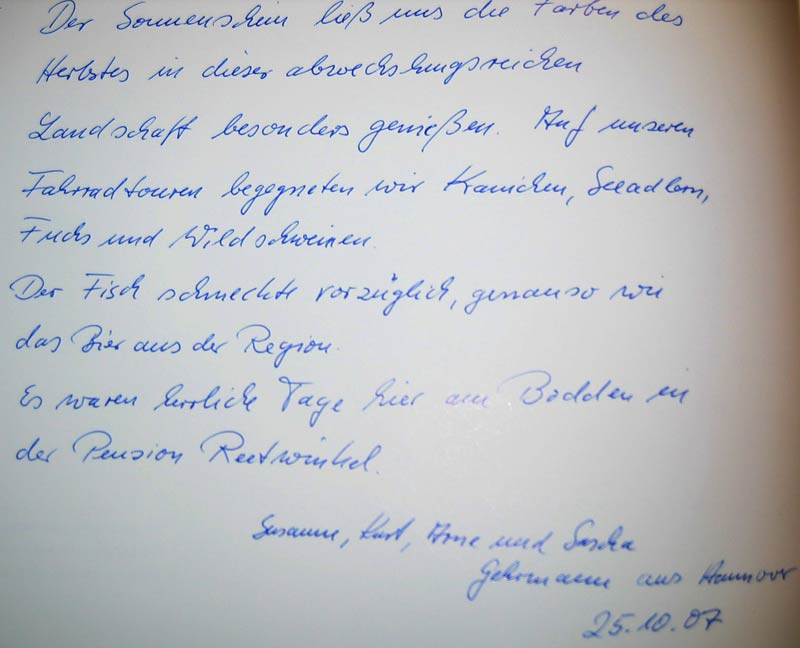 Der Sonnenschein ließ uns die Farben des
Herbstes in dieser abwechslungsreichen
Landschaft besonders genießen. Auf unseren
Fahrradtouren begegneten wir Kranichen, Seeadlern,
Fuchs und Wildschweinen.
Der Fisch schmeckte vorzüglich, genauso wie
das Bier aus der Region.
Es waren herrliche Tage hier am Bodden in
der Pension Reetwinkel.
Susanne, Kurt, Arne und Sascha
Gehrmann aus Hannover
25.10.07